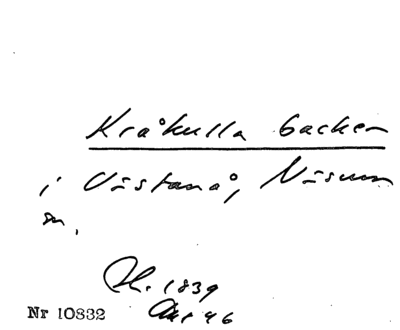 Kråkulla backen
i Västanå, Näsum
sn.
1839
Nr 10832